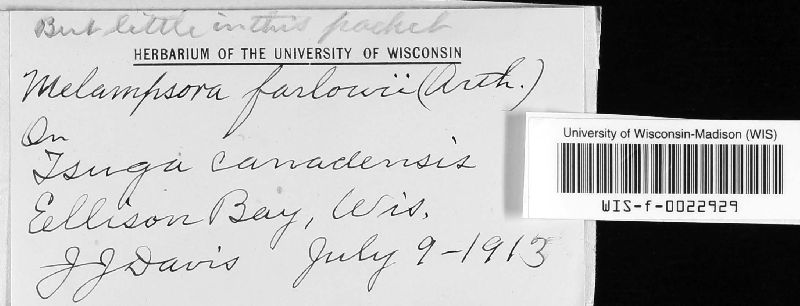 But little in this packet
HERBARIUM OF THE UNIVERSITY OF WISCONSIN
Melampsora farlowii (Arth.)
On
Tsuga canadensis
Ellison Bay, Wis.
J J Davis July 9-1913
University of Wisconsin-Madison (WIS)
WIS-f-0022929